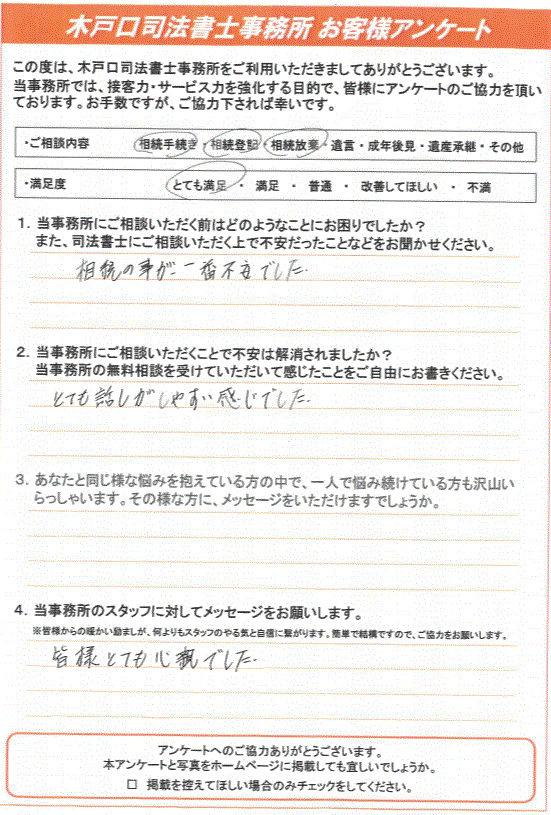 木戸口司法書士事務所 お客様アンケート
この度は、木戸口司法書士事務所をご利用いただきましてありがとうございます。
当事務所では、接客力・サービス力を強化する目的で、皆様にアンケートのご協力を頂い
ております。お手数ですが、ご協力下されば幸いです。
・ご相談内容 相続手続き・相続登記・相続放棄・遺言・成年後見・遺産承継・その他
・満足度 とても満足 ・ 満足 ・ 普通 ・ 改善してほしい ・ 不満
1. 当事務所にご相談いただく前はどのようなことにお困りでしたか?
また、司法書士にご相談いただく上で不安だったことなどをお聞かせください。
相続の事が一番不安でした.
2. 当事務所にご相談いただくことで不安は解消されましたか?
当事務所の無料相談を受けていただいて感じたことをご自由にお書きください。
とても話しがしやすい感じでした.
3. あなたと同じ様な悩みを抱えている方の中で、一人で悩み続けている方も沢山い
らっしゃいます。その様な方に、メッセージをいただけますでしょうか。
4. 当事務所のスタッフに対してメッセージをお願いします。
※皆様からの暖かい励ましが、何よりもスタッフのやる気と自信に繋がります。簡単で結構ですので、ご協力をお願いします。
皆様とても心親でした.
アンケートへのご協力ありがとうございます。
本アンケートと写真をホームページに掲載しても宜しいでしょうか。
□ 掲載を控えてほしい場合のみチェックをしてください。